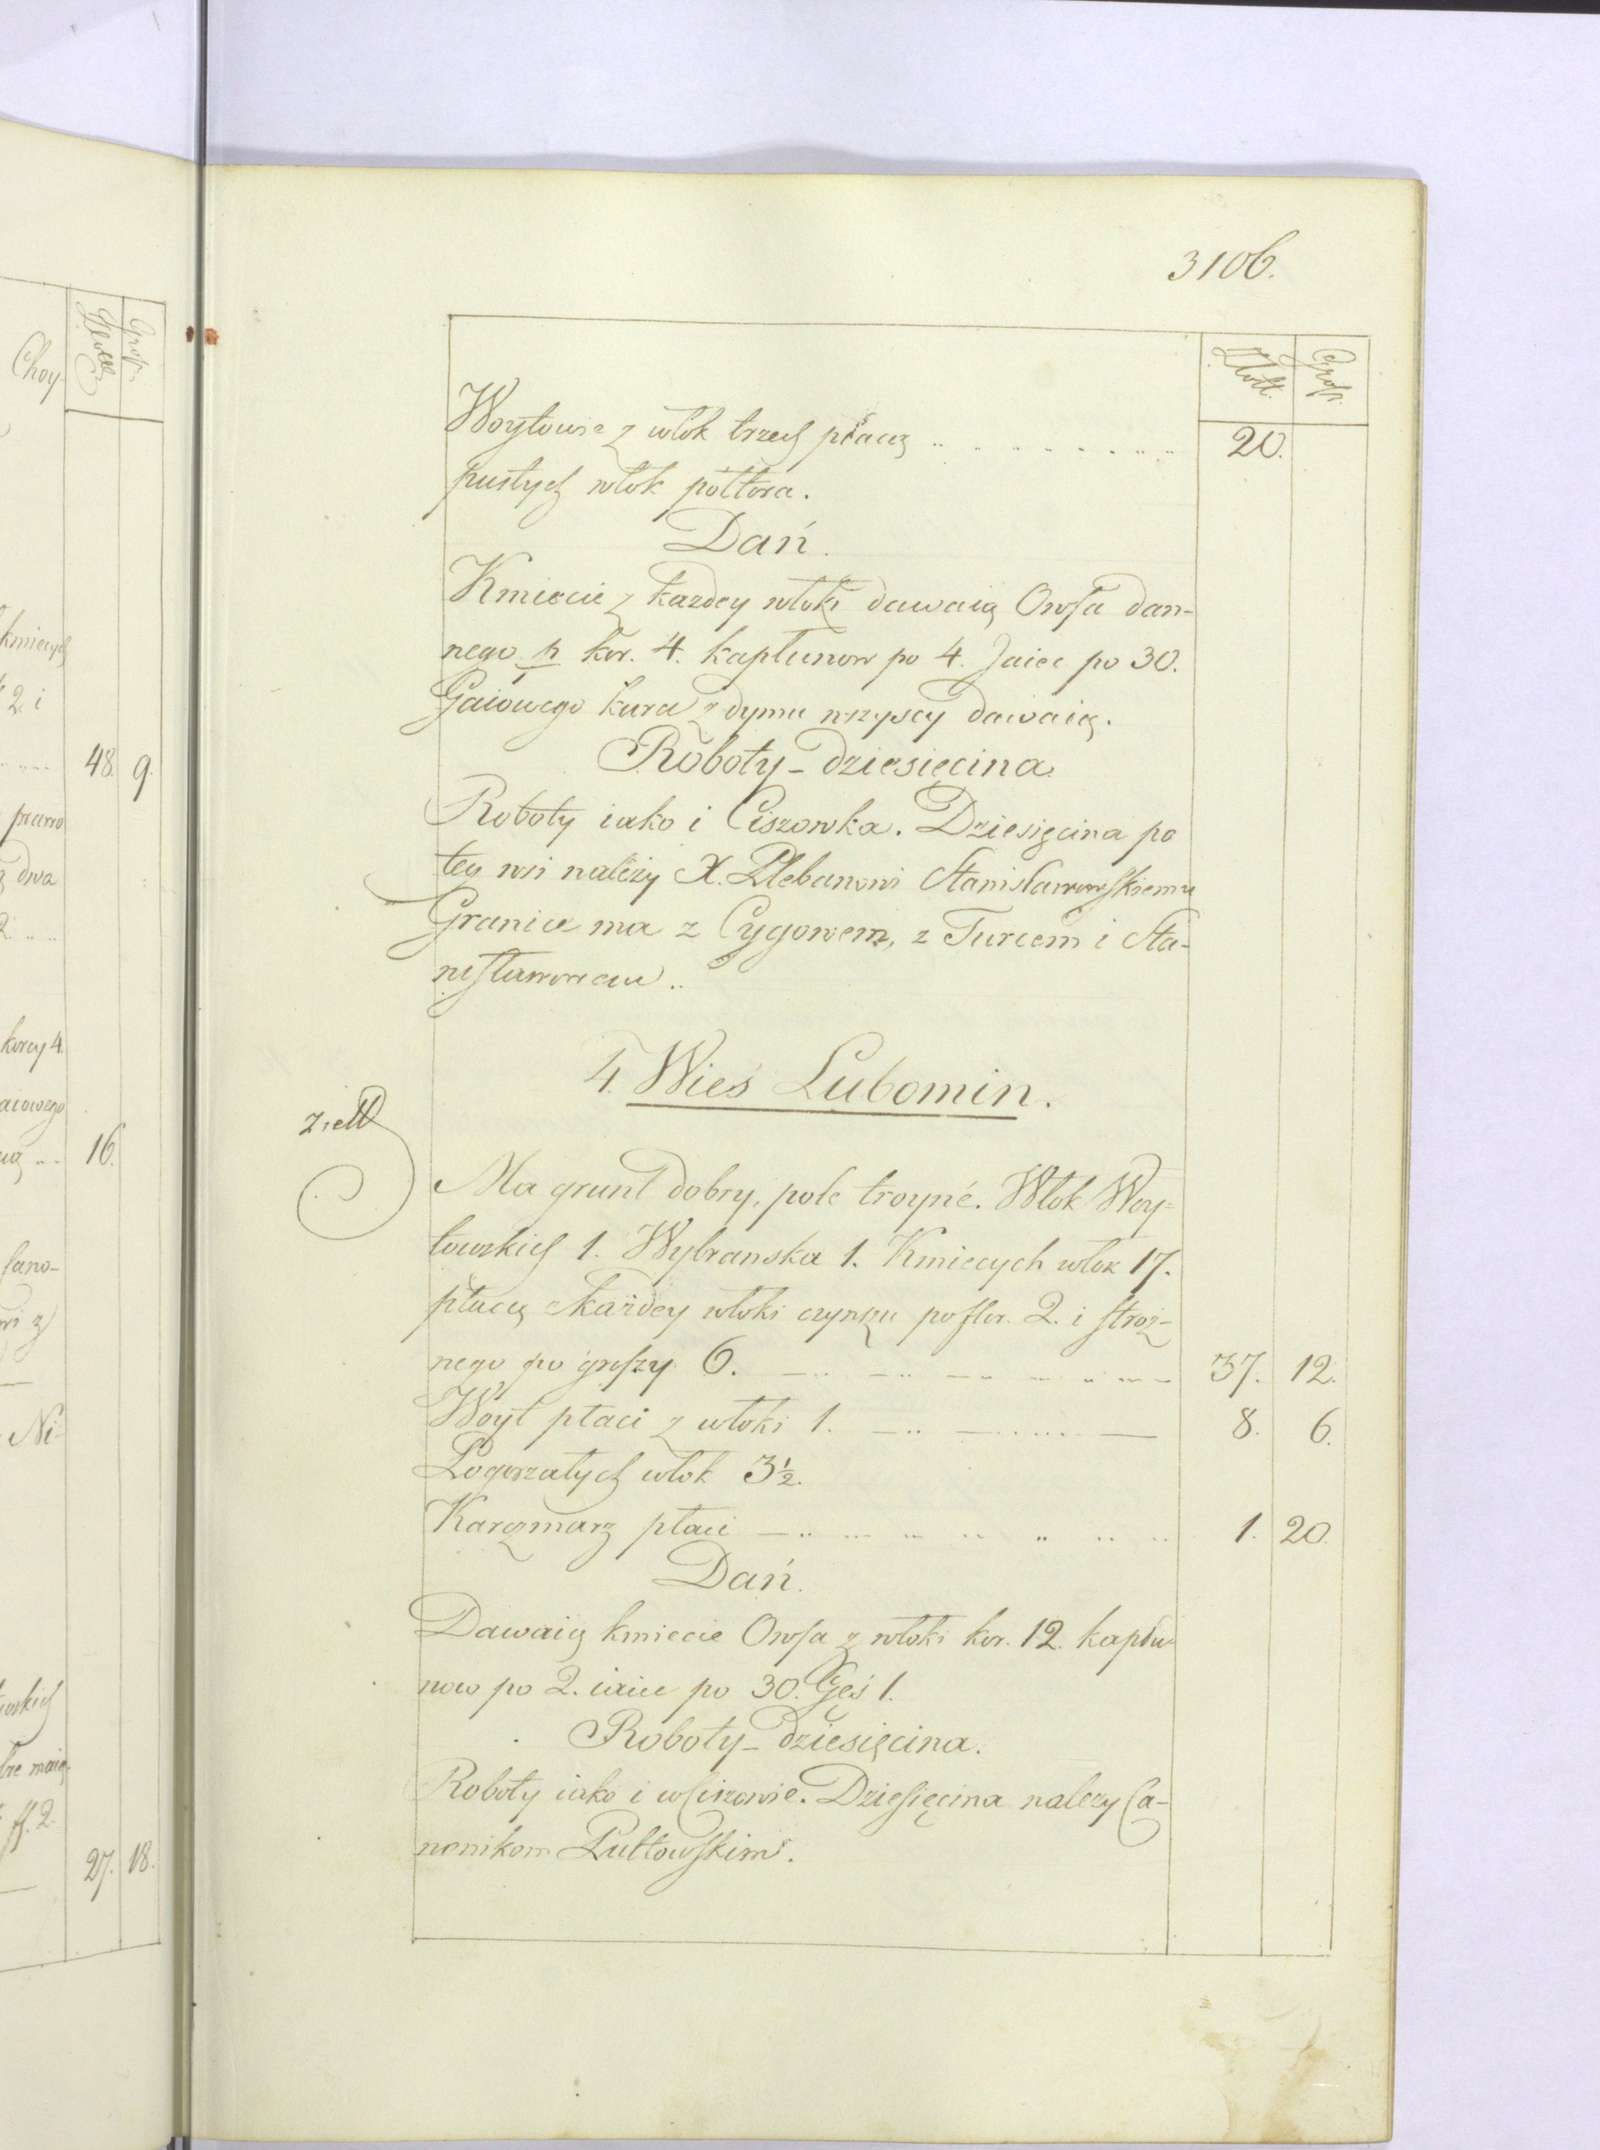 3106.
Złott. Grosz.
Woytowie z włok trzech płacą .. . . . . . . . . 20.
pustych włok półtora.
Dań.
Kmiecie z każdey włoki dawaią Owsa dan-
nego p. kor. 4. kapłunow po 4. Jaiec po 30.
Gaiowego kura z dymu wszyscy dawaią.
Roboty - dziesięcina.
Roboty iako i Ciszowka. Dziesięcina po
tey wsi należy X. Plebanowi Stanisławowskiemu
Granice ma z Cygowem, z Turcem i Sta-
nisławowem ..
4. Wieś Lubomin.
Ma grunt dobry, pole troyné. Włok Woy-
towskich 1. Wybranska 1. Kmiecych włok 17.
płacą zkażdey włoki czynszu po flor. 2. i stroż-
nego po groszy 6. 37. 12.
Woyt płaci z włoki 1. 8. 6.
Pogorzałych włok 3½.
Karczmarz płaci 1. 20.
Dań.
Dawaią kmiecie Owsa z włoki kor. 12. kapłu-
now po 2. iaiec po 30. Gęś 1.
Roboty - dziesięcina.
Roboty iako i w Ciszowie. Dziesięcina należy Ca-
nonikom Pułtowskim.
Choy-
Grosz.
kmiecych
2. i
48. 9.
prawo
dwa
korcy 4.
16.
Ni-
27. 18.